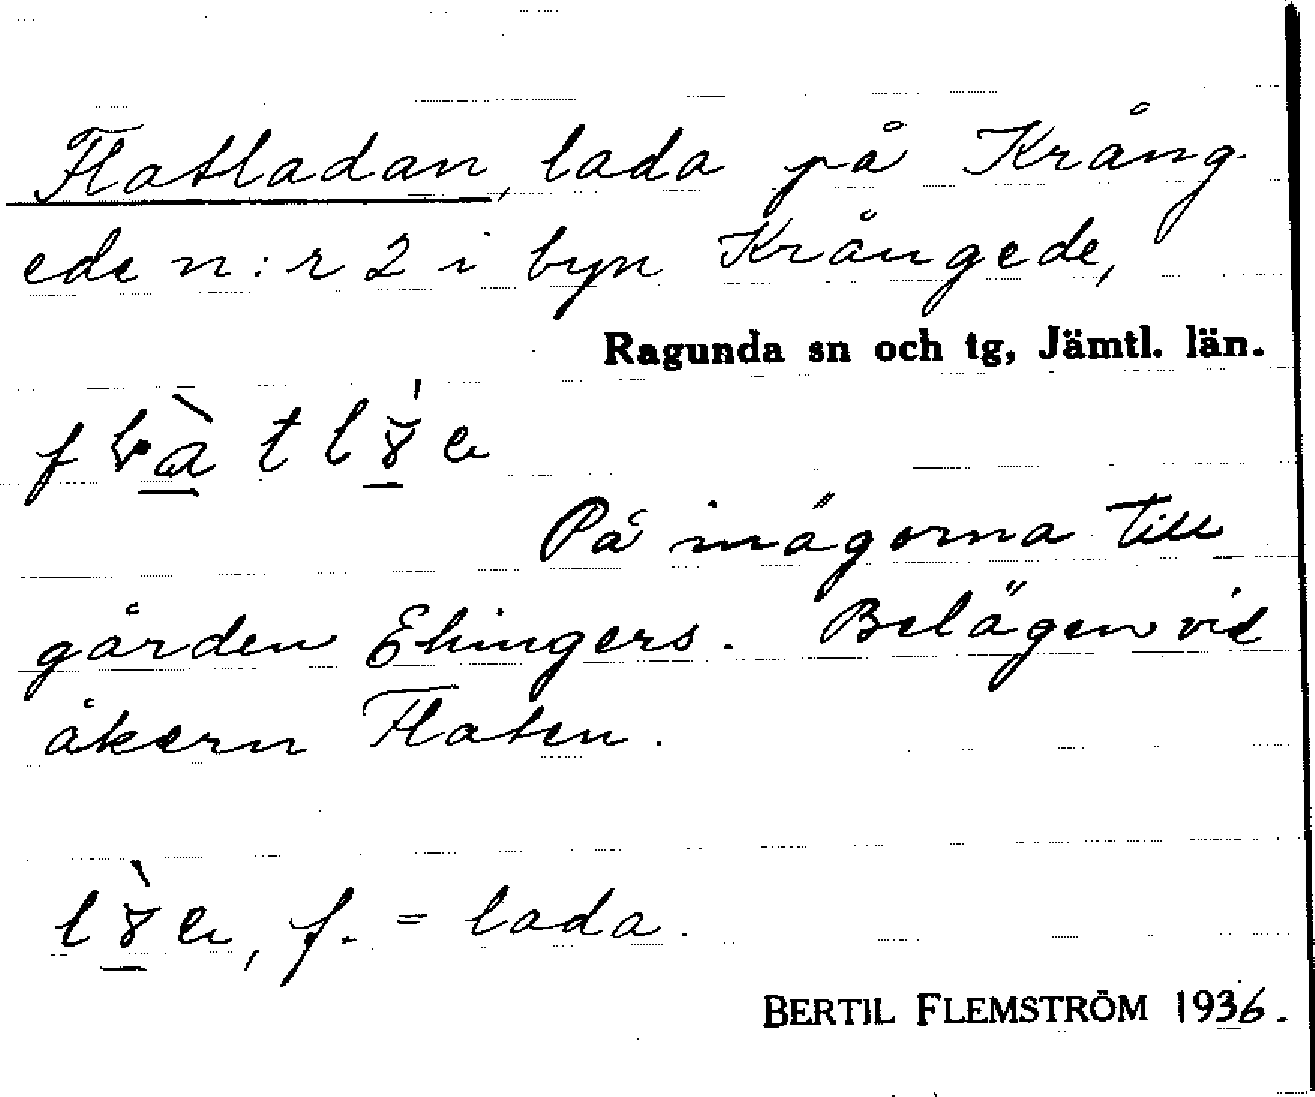 Flatladan, lada på Krång-
ede n:r 2 i byn Krångede,
Ragunda sn och tg, Jämtl. län.
På inägorna till
gården Ehingers. Belägen vid
åkern Flaten.
f. = lada.
BERTIL FLEMSTRÖM 1936.